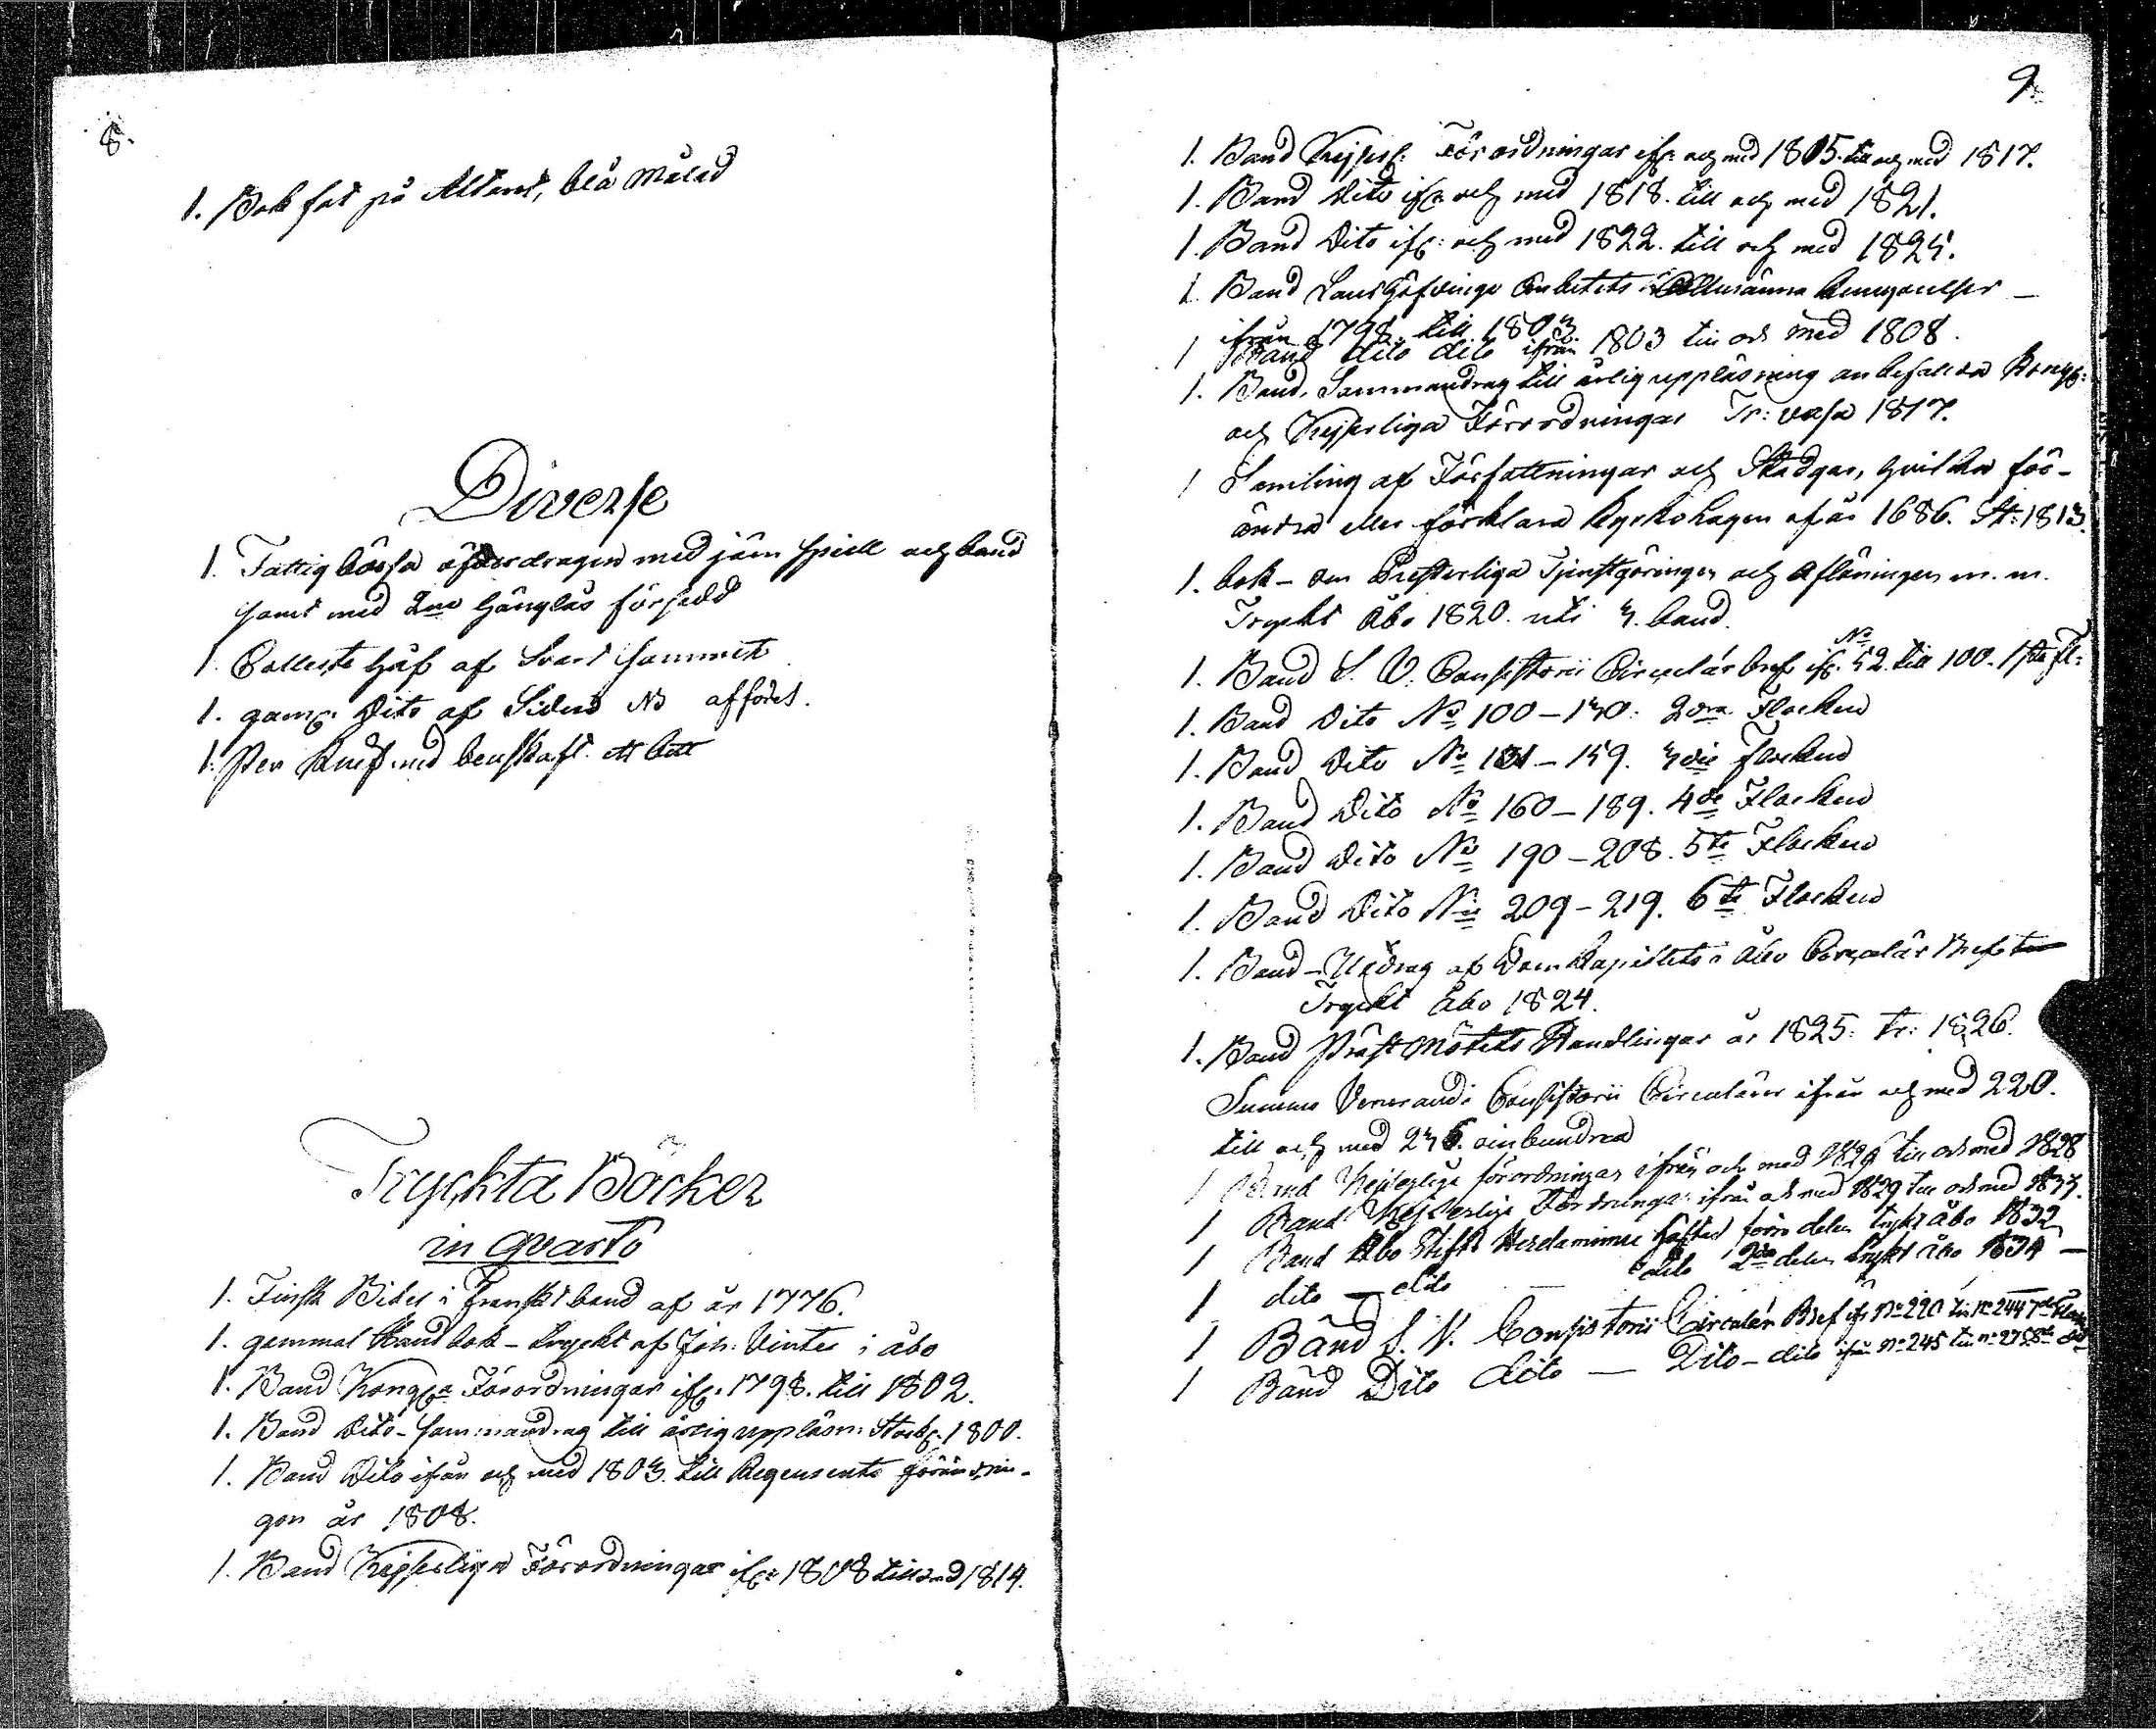 8.
1. Bok fot på Altaret, blå målad
Diverse
1. Fattigbössa öfverdragen med järn spiell och band
samt med 2ne hänglås försedd
1. Collects håf af Svart Sammet
1. gaml: Dito af Siden No affördt.
1. Pen Knif med benskaft
Tryckta Böcker
in Qvarto
1. Finsk Bibel i Franskt band af år 1776.
1. gammal Handbok - tryckt af Joh: Vinter i Åbo
1. Band Kongla Förordningar ifr: 1798. till 1802.
1. Band Dito - Sammandrag till årlig uppläsn: Stockh: 1800.
1. Band Dito ifrån och med 1803. till Regements förändrin-
gen år 1808.
1. Band Kejserliga Förordningar ifr: 1808 till med 1814.
9.
1. Band Kejserl: Förordningar ifr: och med 1815. till och med 1817.
1. Band Dito ifr: och med 1818. till och med 1821.
1. Band Dito ifr: och med 1822. till och med 1825.
1. Band Landshöfdinge Embetets Allmänna kungörelser —
ifrån 1798. till 1803.
1 Band dito dito ifrån 1803 till och med 1808.
1. Band. Sammandrag till årlig uppläsning anbefallda Kongl:
och Kejserliga Förordningar Tr: Vasa 1817.
1 Samling af Författningar och Stadgar, hvilka för-
ändra eller förklara Kyrkolagen af år 1686. St: 1813.
1. bok - om Presterliga Tjenstgöringen och Aflöningen m. m.
Tryckt Åbo 1820. uti 3. band.
1. Band S. V. Consistorii Circulär bref ifr: No 52. till 100. 1sta Fl:
1. Band Dito No 100 - 130. 2dra Flocken
1. Band Dito No 131 - 159. 3die Flocken
1. Band Dito No 160 - 189. 4de Flocken
1. Band Dito No 190 - 208. 5te Flocken
1. Band Dito No 209 - 219. 6te Flocken
1. Band - Utdrag af Domkapitlets i Åbo Circulär Bref
Tryckt Åbo 1824.
1. Band Präst Mötets Handlingar år 1825. tr: 1826.
Summe Venerandi Consistorii Circulairer ifrån och med 220.
till och med 236. oinbundna
1 Band Kejserliga förordningar ifrån och med 1826 till och med 1828
1 Band Kejserliga Förordningar ifrån och med 1829 till och med 1833.
1 Band Åbo Stifts Herdaminne häftad förra delen tryckt Åbo 1832
1 dito — dito — dito 2dra delen tryckt Åbo 1834 —
1 Band S. V. Consistorii Circulär Bref ifr: No 220 till No 244 7de Flocken
1 Band Dito dito — Dito - dito ifrån No 245 till No 275 8de